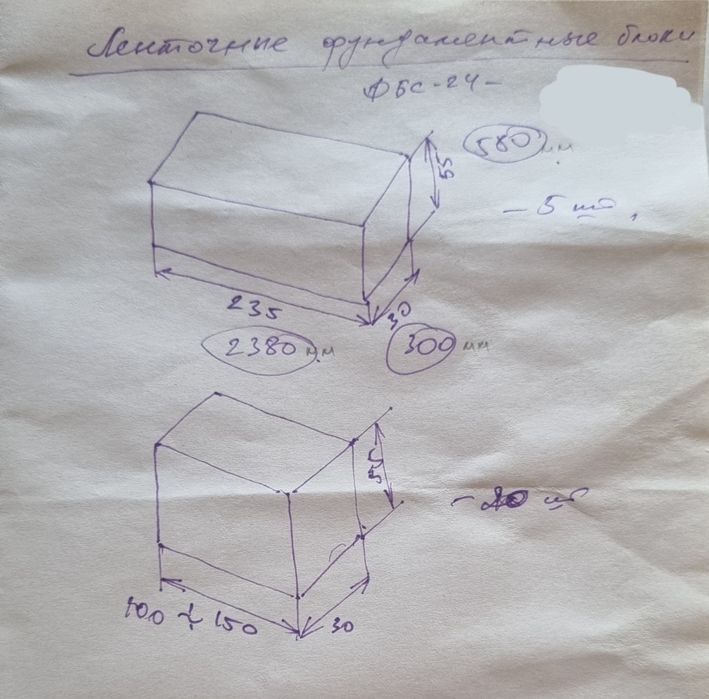 Ленточные фундаментные блоки
ФБС-24-
580 мм
55
- 5 шт,
235
30
2380 мм
300 мм
55
- 20 шт
100 ÷ 150
30